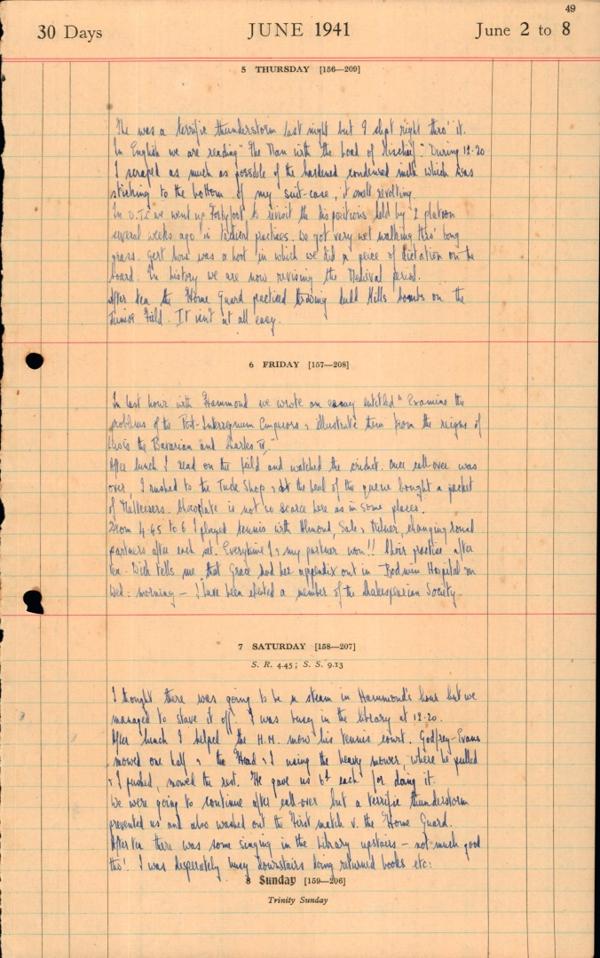 49
30 Days JUNE 1941 June 2 to 8
5 THURSDAY [156—209]
The was a terrific thunderstorm last night but I slept right thro' it.
In English we are reading "The Man with the load of Mischief". During 12.20
I scraped as much as possible of the hardened condensed milk which was
sticking to the bottom of my suit-case, it smelt revolting.
In O.T.C we went up to revisit the dispositions held by 2 platoon
several weeks ago in tactical practices. We got very wet walking thro' long
grass. Gert hour was a hoot in which we did a piece of dictation on the
board. In history we are now revising the Medieval period.
After tea the Home Guard practised throwing dull Mills bombs on the
Junior Field. It isn't at all easy.
6 FRIDAY [157—208]
In last hour with Hammond we wrote an essay entitled "Examine the
problems of the Post-Interregnum Emperors & illustrate them from the reigns of
Louis the Bavarian and Charles IV".
After lunch I read on the field and watched the cricket. Once call-over was
over, I rushed to the Tuck Shop & at the head of the queue bought a packet
of Maltesers. Chocolate is not so scarce here as in some places.
From 4.45 to 6 I played tennis with Almond, Sale & Milner, changing round
partners after each set. Everytime I & my partner won!! Choir practice after
tea. tells me that Grace had her appendix out in Bodmin Hospital on
Wed: morning — I have been elected a member of the Shakespearian Society.
7 SATURDAY [158—207]
S. R. 4.45; S. S. 9.13
I thought there was going to be a steam in Hammond's hour but we
managed to stave it off. I was busy in the library at 12.20.
After lunch I helped the H.M. mow his tennis court. Godfrey-Evans
mowed one half & the Head & I using the heavy mower, where he pulled
& I pushed, mowed the rest. He gave us 6d each for doing it.
We were going to continue after call-over but a terrific thunderstorm
prevented us and also washed out the First match v. the Home Guard.
After tea there was some singing in the Library upstairs — not much good
tho'. I was desperately busy downstairs doing returned books etc:
8 Sunday [159—206]
Trinity Sunday